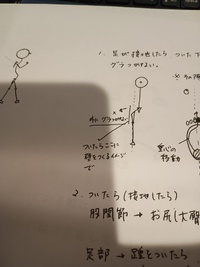 1. 足が接地したら ついた下
グラつかない。
ついたらここに
壁をつくるイメージで
重心の
移動
2. ついたら(接地したら)
股関節 → お尻(大臀
足部 → 踵をついたら